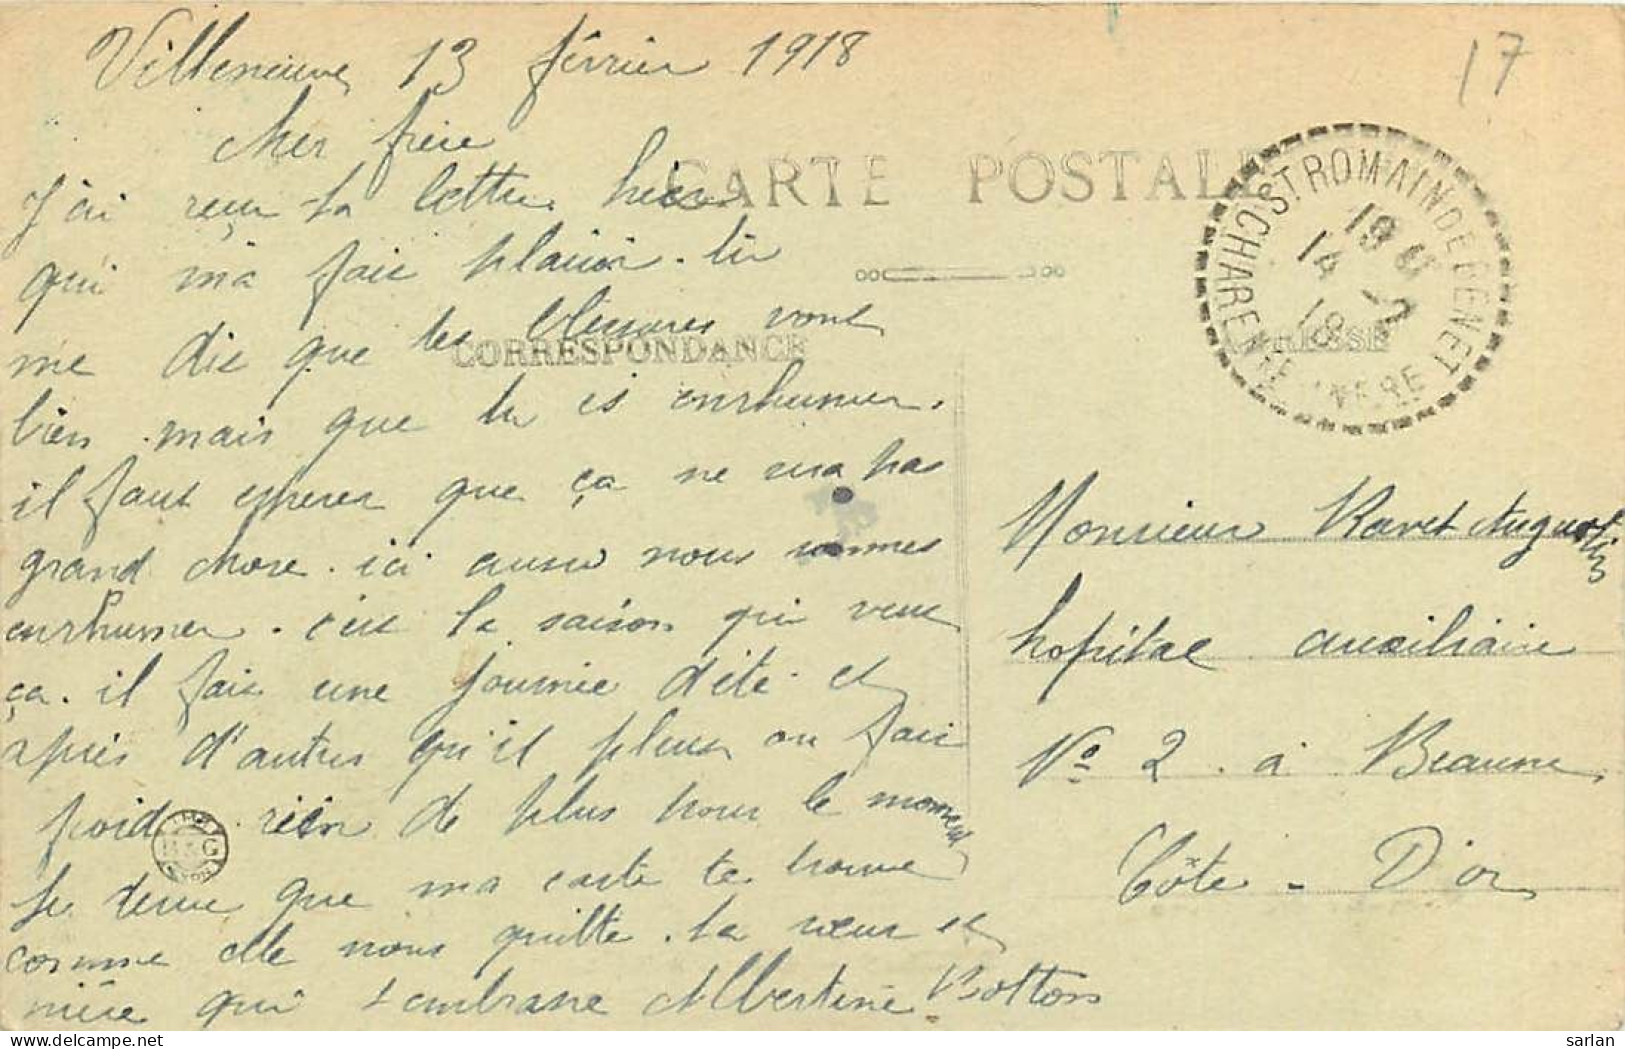 17
Villeneuve 13 février 1918
Cher frère
CARTE POSTALE
J'ai reçu ta lettre hier
qui ma fais plaisir. tu
me dis que tes blessures vont
CORRESPONDANCE
bien mais que tu es enrhumer.
il faut esperer que ça ne sera pas
grand chose. ici aussi nous sommes
enrhumer. c'est la saison qui veut
ça. il fais une journée d'été et
après d'autres qu'il pleus ou fais
froid rien de plus pour le moment
Je desire que ma carte te trouve
comme elle nous quitte. ta sœur et
nièce qui t'embrasse Albertine Botton
ST ROMAIN DE BENET
19
14 - 2
18
CHARENTE INFRE
ADRESSE
Monsieur Ravet Augustin
hopital auxiliaire
No 2 à Beaune
Côte - D'or
sarlan